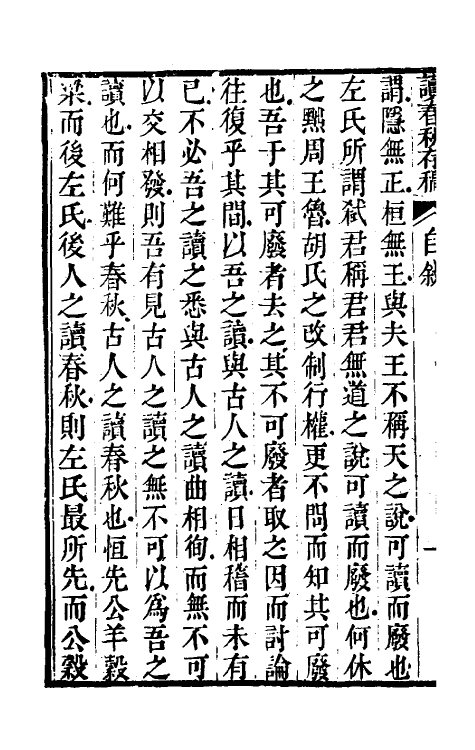 讀春秋存稿 自敘 一
謂隱無正桓無王與夫王不稱天之說可讀而廢也
左氏所謂弑君稱君君無道之說可讀而廢也何休
之黜周王魯胡氏之改制行權更不問而知其可廢
也吾于其可廢者去之其不可廢者取之因而討論
往復乎其間以吾之讀與古人之讀日相稽而未有
已不必吾之讀之悉與古人之讀曲相徇而無不可
以交相發則吾有見古人之讀之無不可以為吾之
讀也而何難乎春秋古人之讀春秋也恒先公羊穀
梁而後左氏後人之讀春秋則左氏最所先而公穀